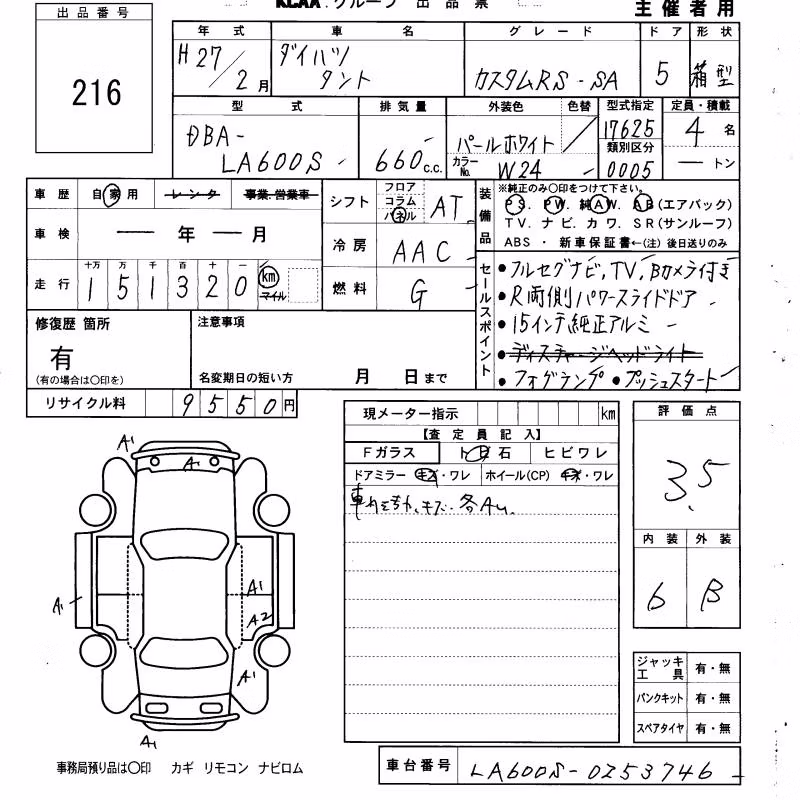 出品番号
216
KCAA グループ 出品票
主催者用
年式 車名 グレード ドア 形状
H27/2月 ダイハツ タント カスタムRS-SA 5 箱型
型式 排気量 外装色 色替 型式指定 定員・積載
DBA-LA600S 660c.c. パールホワイト 17625 4名
カラーNo. W24 類別区分 0005 トン
車歴 自家用 レンタ 事業.営業車
車検 年 月
走行 十万 万 千 百 十 一
151320 km マイル
シフト フロア コラム パネル AT
冷房 AAC
燃料 G
装備品
※純正のみ〇印をつけて下さい。
PS. PW. 純AW. AB(エアバック)
TV. ナビ. カワ. SR(サンルーフ)
ABS ・ 新車保証書←(注)後日送りのみ
セールスポイント
●フルセグナビ,TV,Bカメラ付き
●R両側パワースライドドア
●15インチ純正アルミ
●ディスチャージヘッドライト
●フォグランプ ●プッシュスタート
修復歴 箇所
有
(有の場合は〇印を)
注意事項
名変期日の短い方 月 日まで
リサイクル料 9550円
現メーター指示 km
【査定員記入】
Fガラス ト 石 ヒビワレ
ドアミラー キズ・ワレ ホイール(CP) キズ・ワレ
キズ. 各A
評価点
3.5
内装 外装
6 B
A1
A1
A1
A1
A2
A1
A1
ジャッキ工具 有・無
パンクキット 有・無
スペアタイヤ 有・無
事務局預り品は〇印 カギ リモコン ナビロム
車台番号 LA600S-0253746